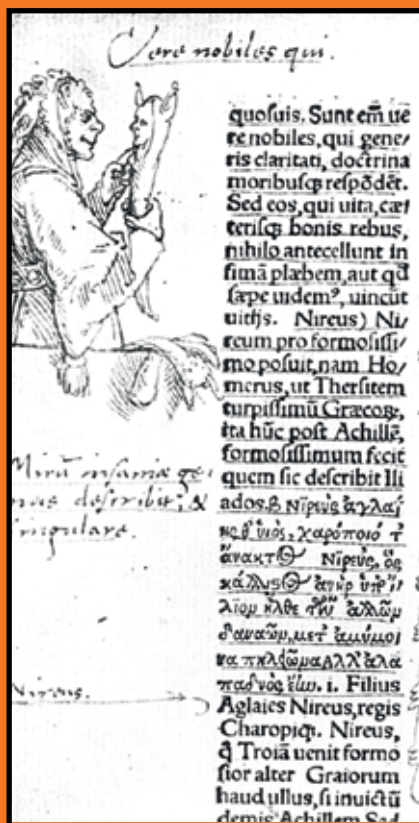 Vere nobiles qui.
quoſuis. Sunt em̄ ue
re nobiles, qui gene/
ris claritati, doctrina
moribuſq; reſpōdēt.
Sed eos, qui uita, cæt
teriſq; bonis rebus,
nihilo antecellunt in
fimā plæbem, aut qđ
ſæpe uidemꝰ, uincūt
uitijs. Nireus) Ni/
reum pro formoſiſſi/
mo poſuit, nam Ho/
merus, ut Therſitem
turpiſſimū Græcoꝝ,
ita hūc poſt Achillē,
formoſiſſimum fecit
quem ſic deſcribit Ili
ados. β Νιρεὺς ἀγλαΐ
ης θ' ὑιὸς, χαρόποιό τ
ἄνακτος Νιρεὺς, ὃς
κάλλιςος ἀνὴρ ὑπὸ ἴ/
λιον ἦλθε τῶν ἄλλων
δαναῶν, μετ ἀμύμο
παδνὸς ἔην. i. Filius
Aglaies Nireus, regis
Charopiq;. Nireus,
q̄ Troiā uenit formo
ſior alter Graiorum
haud ullus, ſi inuictū
demis Achillem Sed
Mirū insaniæ ge-
nus describit, &
singulare.
Nireus.